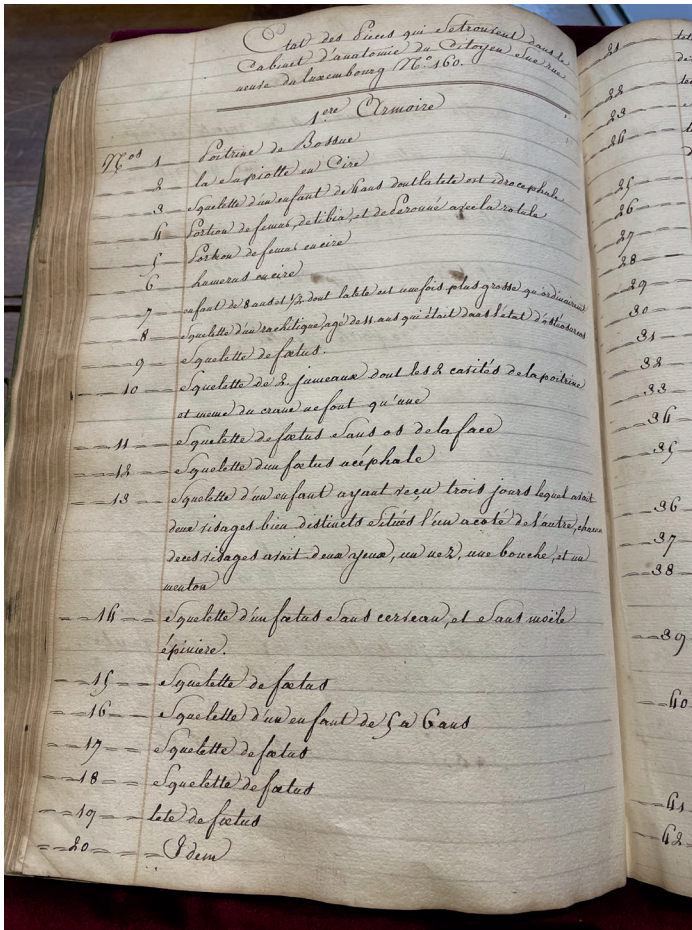 Etat des Pieces qui se trouvent dans le
Cabinet d'anatomie du Citoyen Sue rue
neuve du luxembourg N.º 160.
1ere Armoire
Nos 1 Poitrine de Bossue
2 la en Cire
3 squelette d'un enfant de 6 ans dont la tete est idrocephale
4 Portion de femur, de tibia, et de Peronné avec la rotule
5 Portion de femur en cire
6 humerus en cire
7 enfant de 8 ans et 1/2 dont la tete est une fois plus grosse qu'ordinairement
8 squelette d'un rachitique, agé de 11 ans qui était dans l'état
9 squelette de fœtus.
10 squelette de 2. jumeaux dont les 2 cavités de la poitrine
et meme du crane ne font qu'une
11 squelette de fœtus sans os de la face
12 squelette d'un fœtus acéphale
13 squelette d'un enfant ayant vecu trois jours lequel avait
deux visages bien distincts situés l'un a coté de l'autre, chacun
de ces visages avait deux yeux, un nez, une bouche, et un
menton
14 squelette d'un fœtus sans cerveau, et sans moële
épiniere.
15 squelette de fœtus
16 squelette d'un enfant de 5 a 6 ans
17 squelette de fœtus
18 squelette de fœtus
19 tete de fœtus
20 Idem
21
22
23
24
25
26
27
28
29
30
31
32
33
34
35
36
37
38
39
40
41
42